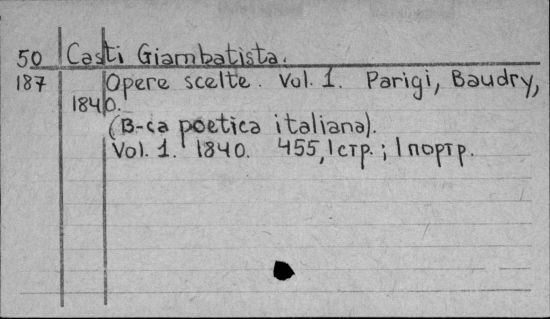 50 Casti Giambatista.
187 Opere scelte. Vol. 1. Parigi, Baudry,
1840.
(B-ca poetica italiana).
Vol. 1. 1840. 455, 1 стр.; 1 портр.